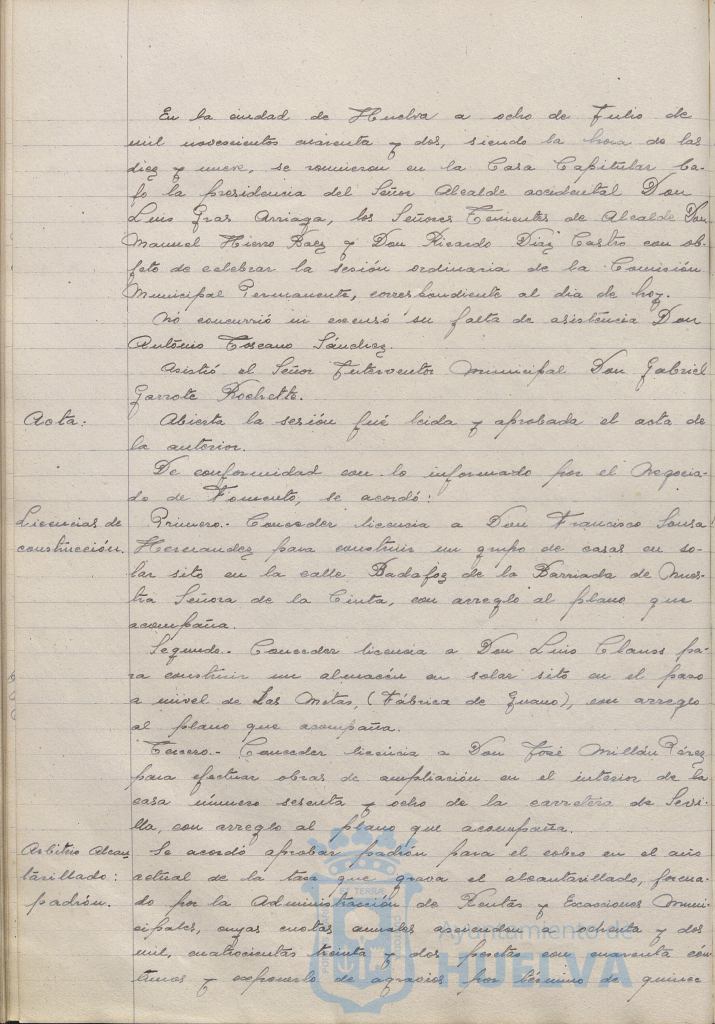 En la ciudad de Huelva a ocho de Julio de
mil novecientos cuarenta y dos, siendo la hora de las
diez y nueve, se reunieron en la Casa Capitular ba-
jo la presidencia del Señor Alcalde accidental Don
Luis Gras Arriaga, los Señores Tenientes de Alcalde Don
Manuel Hierro Baez y Don Ricardo Diaz Castro con ob-
jeto de celebrar la sesión ordinaria de la Comisión
Municipal Permanente, correspondiente al dia de hoy.
No concurrió ni excusó su falta de asistencia Don
António Toscano Sánchez.
Asistió el Señor Interventor municipal Don Gabriel
Garrote Rochette.
Acta: Abierta la sesión fué leida y aprobada el acta de
la anterior.
De conformidad con lo informado por el Negocia-
do de Fomento, se acordó:
Licencias de Primero.- Conceder licencia a Don Francisco Sousa
construcción. Hernandez para construir un grupo de casas en so-
lar sito en la calle Badajoz de la Barriada de Nues-
tra Señora de la Cinta, con arreglo al plano que
acompaña.
Segundo.- Conceder licencia a Don Luis Clauss pa-
ra construir un almacén en solar sito en el paso
a nivel de Las Metas, (Fábrica de Guano), con arreglo
al plano que acompaña.
Tercero.- Conceder licencia a Don José Millán Pérez
para efectuar obras de ampliación en el interior de la
casa número sesenta y ocho de la carretera de Sevi-
lla, con arreglo al plano que acompaña.
Arbitrio Alcan- Se acordó aprobar padrón para el cobro en el año
tarillado: actual de la tasa que grava el alcantarillado, forma-
padrón. do por la Administración de Rentas y Exacciones Muni-
cipales, cuyas cuotas anuales ascienden a ochenta y dos
mil, cuatrocientas treinta y dos pesetas con cuarenta cén-
timos y exponerlo de agravios por término de quince
Ayuntamiento de
HUELVA